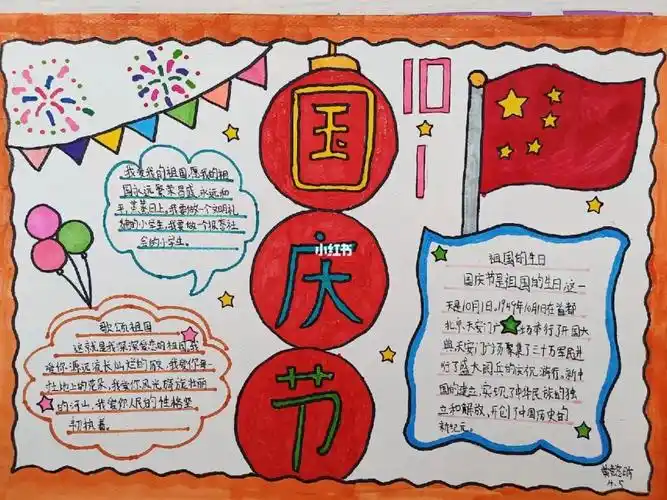 国
庆
节
10
1
小红书
我爱我的祖国,愿我的祖
国永远繁荣昌盛,永远和
平,蒸蒸日上。我要做一个文明礼
貌的小学生,我要做一个报答社
会的小学生。
歌颂祖国
这就是我深深爱恋的祖国。我
爱你源远流长灿烂的历史,我爱你每
一寸土地上的花朵,我爱你风光旖旎壮丽
的河山,我爱你人民的性格坚
韧执着。
祖国的生日
国庆节是祖国的生日,这一
天是10月1日,1949年10月1日在首都
北京天安门广场举行了开国大
典,天安门广场聚集了三十万军民进
行了盛大阅兵的庆祝、游行。新中
国的建立,实现了中华民族的独
立和解放,开创了中国历史的
新纪元。
4.5